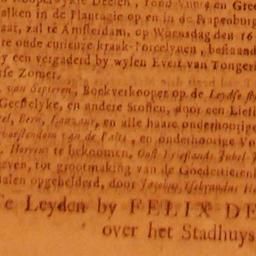 alken in de Plantagie op en in de Papenburg
aat, zal te Amsterdam, op Woensdag den 16
te oude curieuze kraak-Porcelynen, bestaande
y een vergaderd by wylen Evert van Tongeri
ste Zomer.
van Septeren, Boekverkooper op de Leydse st
Geestelyke, en andere Stoffen, door een Lief
Bern, Lauzane, en alle haare onderhoorige
vorstendom van de Paltz, en onderhoorige Vo
Horrens te bekoomen, Oost-Vrieslands Jubel-J
even, tot grootmaking van de Goedertieren
alen opgehelderd, door Jacobus Isebrandus
Te Leyden by FELIX DE
over het Stadhuys